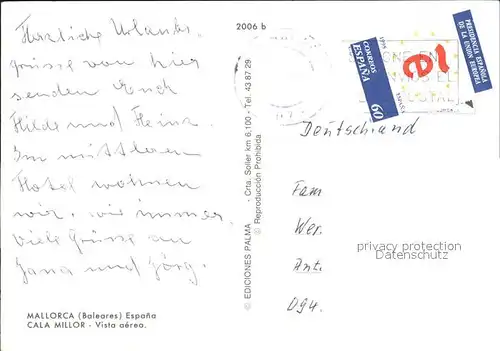 2006 b
Herzliche Urlaubs-
grüsse von hier
senden Euch
Hilde und Heinz.
Im mittleren
Hotel wohnen
wir, wie immer.
Viele Grüsse an
Jana und Jörg.
MALLORCA (Baleares) España
CALA MILLOR - Vista aérea.
© EDICIONES PALMA - Crta. Soller km 6,100 - Tel. 43 87 29
© Reproducción Prohibida
CORREOS
ESPAÑA
60
1995
PRESIDENCIA ESPAÑOLA
DE LA UNION EUROPEA
Deutschland
Fam
Wer.
Ant.
D94.
privacy protection
www.oldthing.de